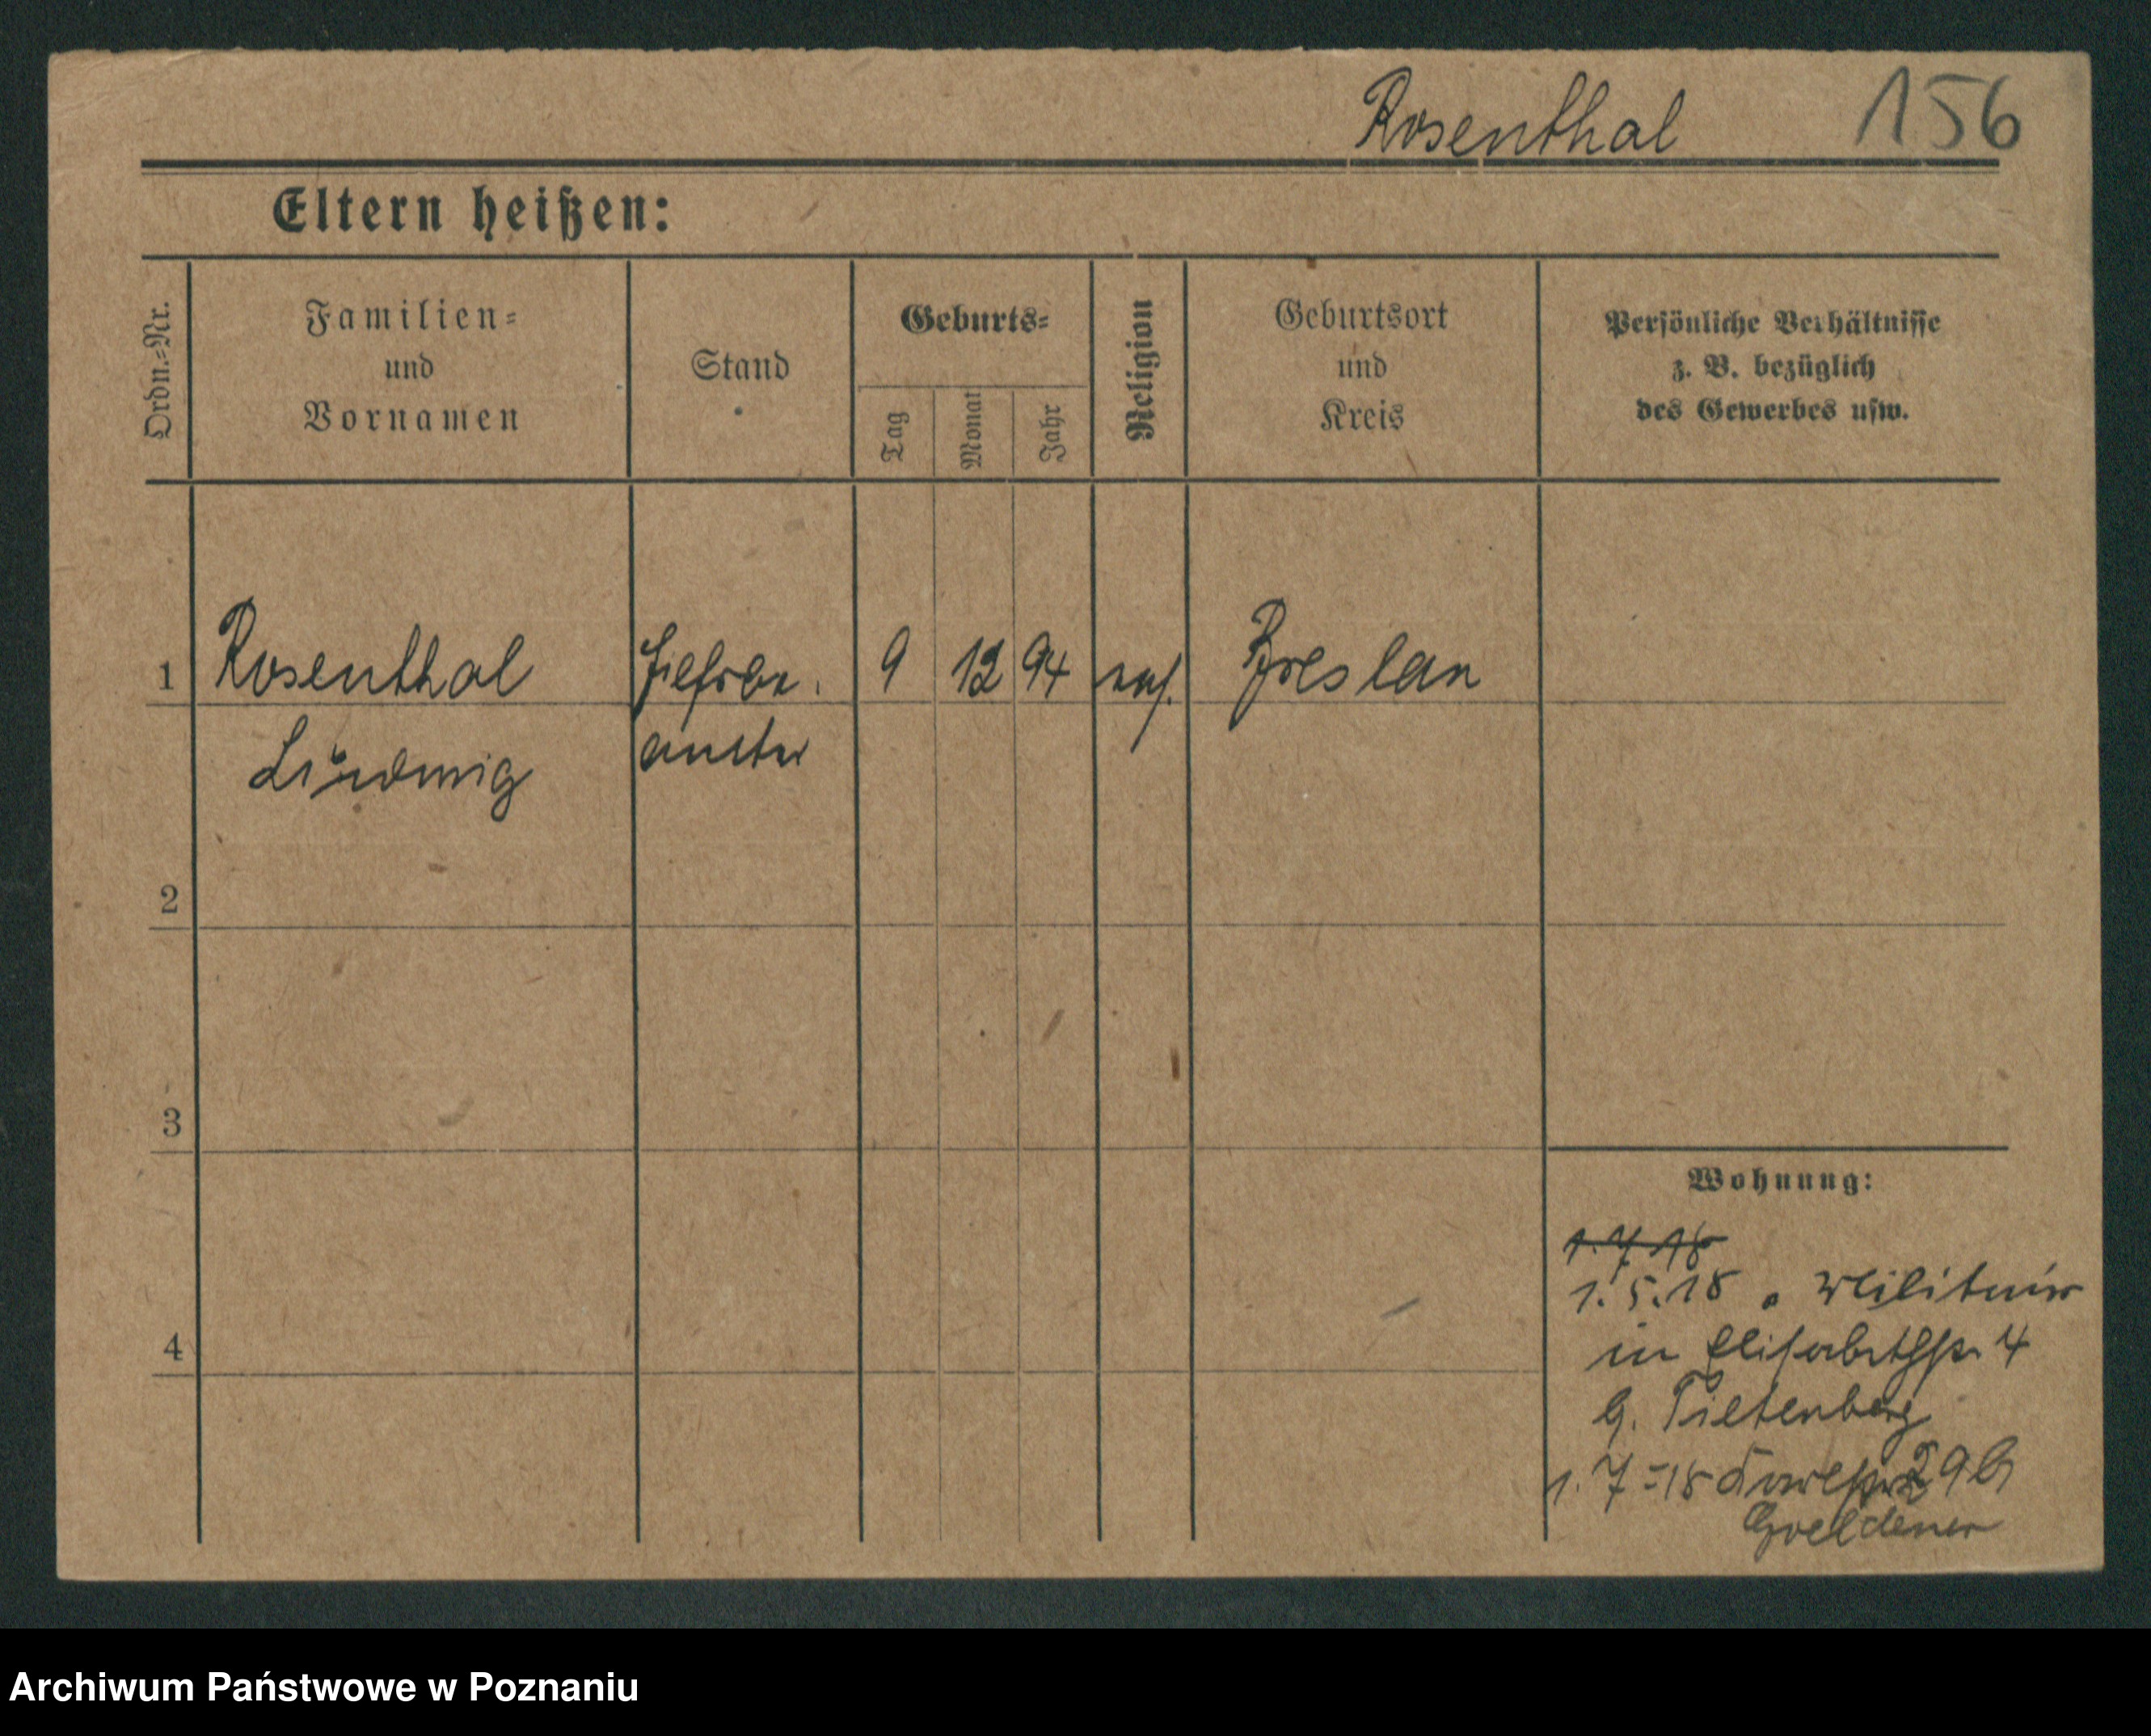 Rosenthal 156
Eltern heißen:
Ordn.-Nr.
Familien-
und
Vornamen
Stand
Geburts-
Tag
Monat
Jahr
Religion
Geburtsort
und
Kreis
Persönliche Verhältnisse
z. B. bezüglich
des Gewerbes usw.
1 Rosenthal 9 12 94 Breslau
Ludwig
2
3
4
Wohnung:
1.7.18
1.5.18 v. Militär
in Elisabethstr. 4
b. Tietenberg
1.7.18 29 b
Goeldener
Archiwum Państwowe w Poznaniu